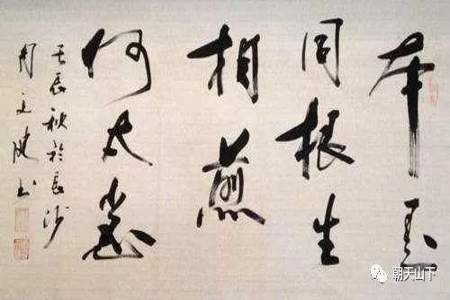 本是
同根生
相煎
何太急
壬辰秋於長沙
周文健书
朝天山下